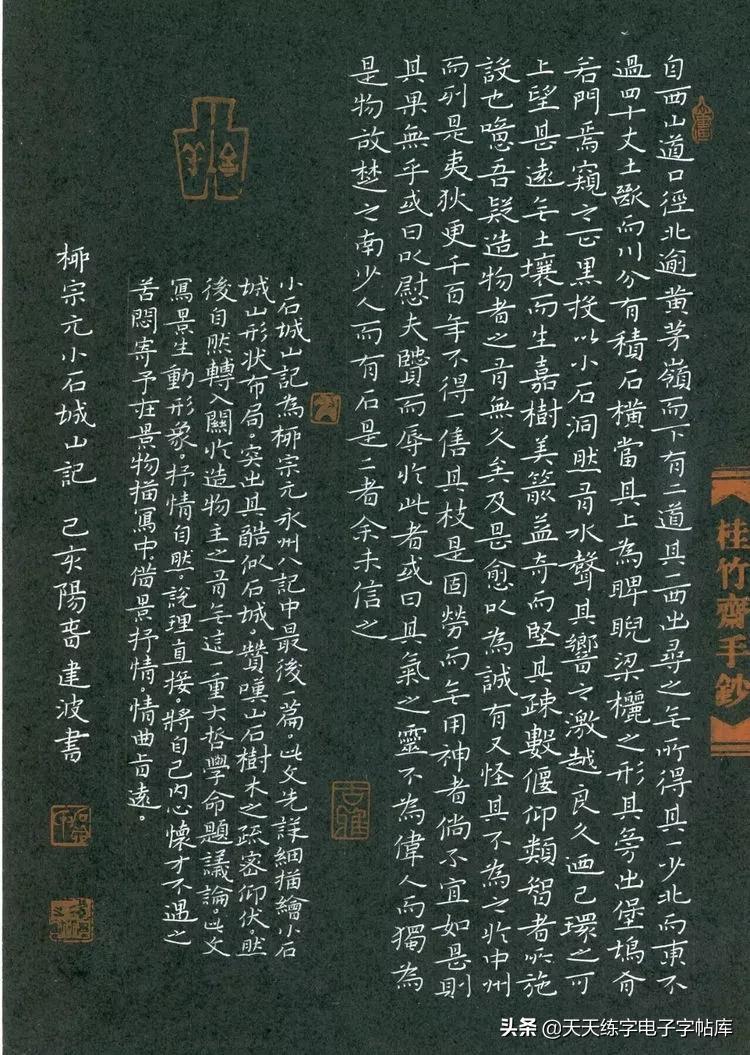 自西山道口徑北逾黃茅嶺而下有二道其一西出尋之无所得其一少北而東不
過四十丈土斷而川分有積石橫當其上為睥睨梁欐之形其旁出堡塢有
若門焉窺之正黑投以小石洞然有水聲其響之激越良久迺已環之可
上望甚遠无土壤而生嘉樹美箭益奇而堅其疎數偃仰類智者所施
設也噫吾疑造物者之有無久矣及是愈以為誠有又怪其不為之於中州
而列是夷狄更千百年不得一售其技是固勞而无用神者倘不宜如是則
其果無乎或曰以慰夫賢而辱於此者或曰其氣之靈不為偉人而獨為
是物故楚之南少人而有石是二者余未信之
小石城山記為柳宗元永州八記中最後一篇。此文先詳細描繪小石
城山形狀布局。突出其酷似石城。贊嘆山石樹木之疏密仰伏。然
後自然轉入關於造物主之有无這一重大哲學命題議論。此文
寫景生動形象。抒情自然。說理直接。將自己內心懷才不遇之
苦悶寄予在景物描寫中。借景抒情。情曲旨遠。
柳宗元小石城山記 己亥陽春建波書
桂竹齋手鈔
古雅
头条 @天天练字电子字帖库